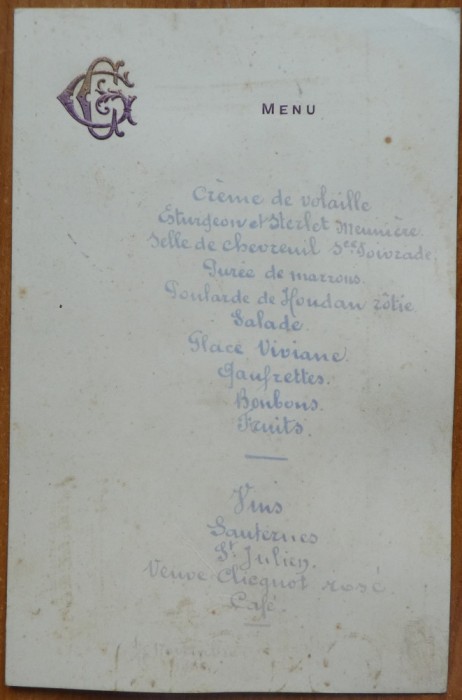 MENU
Crème de volaille
Esturgeon et Sterlet Meunière
Selle de chevreuil Sce Poivrade
Purée de marrons
Poularde de Houdan rôtie
Salade
Glace Viviane
Gaufrettes.
Bonbons.
Fruits.
Vins
Sauternes
St Julien.
Veuve Clicquot rosé.
Café.